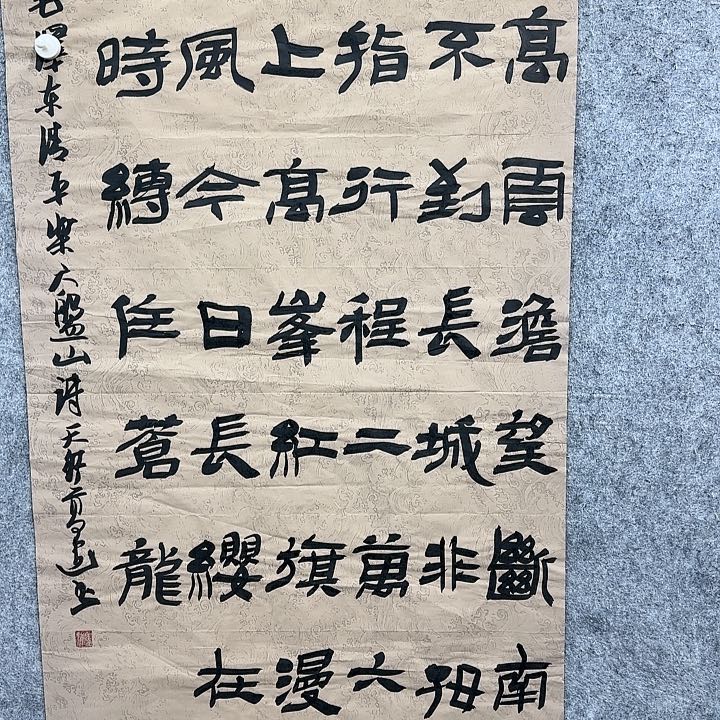 高雲澹望斷南
不到長城非好
指行程二萬六
上高峯紅旗漫
風今日長纓在
時縛住蒼龍
毛澤东清平樂六盤山詩